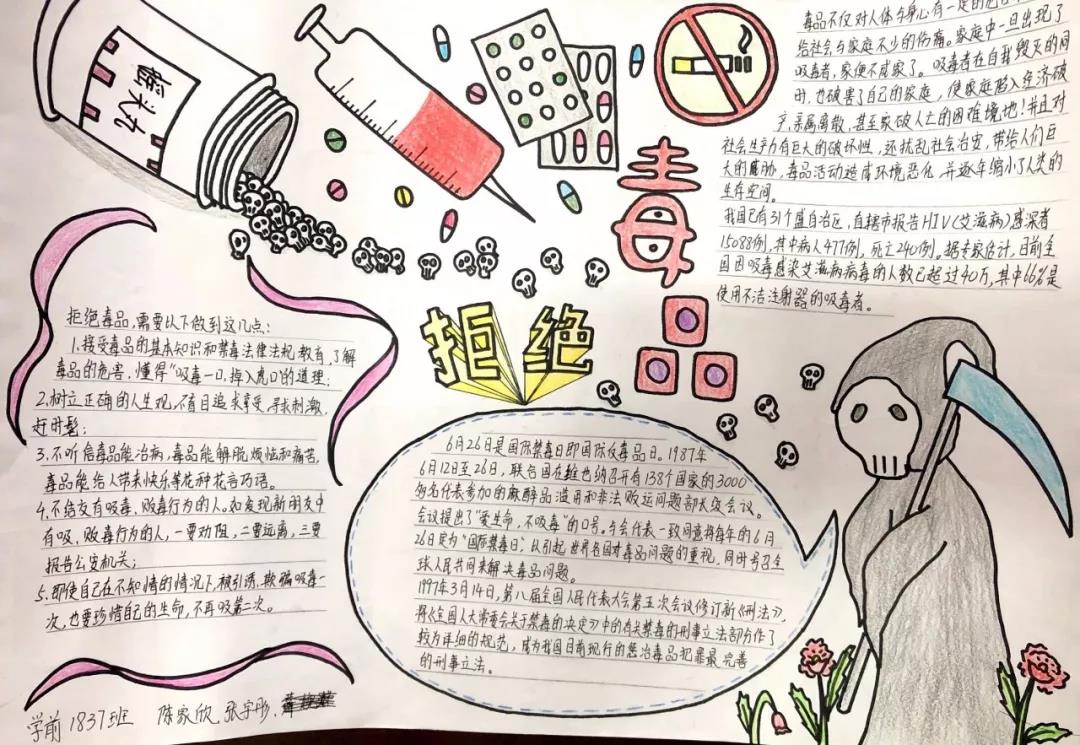 毒品不仅对人体与身心有一定的危
给社会与家庭不少的伤痛。家庭中一旦出现了
吸毒者,家便不成家了。吸毒者在自我毁灭的同
时,也破害了自己的家庭,使家庭陷入经济破
产、亲属离散,甚至家破人亡的困难境地!并且对
社会生产力有巨大的破坏性,还扰乱社会治安,带给人们巨
大的威胁,毒品活动造成环境恶化,并逐年缩小了人类的
生存空间。
我国已有31个盛自治区,直辖市报告HIV(艾滋病)感染者
15088例,其中病人477例,死亡240例。据专家估计,目前全
国因吸毒感染艾滋病病毒的人数已超过40万,其中66%是
使用不洁注射器的吸毒者。
毒品
拒绝
拒绝毒品,需要以下做到这几点:
1.接受毒品的基本知识和禁毒法律法规教育,了解
毒品的危害,懂得“吸毒一口,掉入虎口”的道理;
2.树立正确的人生观,不盲目追求享受,寻求刺激,
赶时髦;
3.不听信毒品能治病,毒品能解脱烦恼和痛苦,
毒品能给人带来快乐等花种花言巧语。
4.不结交有吸毒、贩毒行为的人。如发现新朋友中
有吸、贩毒行为的人,一要劝阻,二要远离,三要
报告公安机关;
5.即使自己在不知情的情况下,被引诱、欺骗吸毒一
次,也要珍惜自己的生命,不再吸第二次。
6月26日是国际禁毒日即国际反毒品日。1987年
6月12日至26日,联合国在维也纳召开有138个国家的3000
多名代表参加的麻醉品滥用和非法贩运问题部长级会议。
会议提出了“爱生命,不吸毒”的口号。与会代表一致同意将每年的6月
26日定为“国际禁毒日”,以引起世界各国对毒品问题的重视,同时号召全
球人民共同来解决毒品问题。
1997年3月14日,第八届全国人民代表大会第五次会议修订新《刑法》,
将《全国人大常委会关于禁毒的决定》中的有关禁毒的刑事立法部分作了
较为详细的规范,成为我国目前现行的惩治毒品犯罪最完善
的刑事立法。
学前1837班 陈家欣、张宇彤、